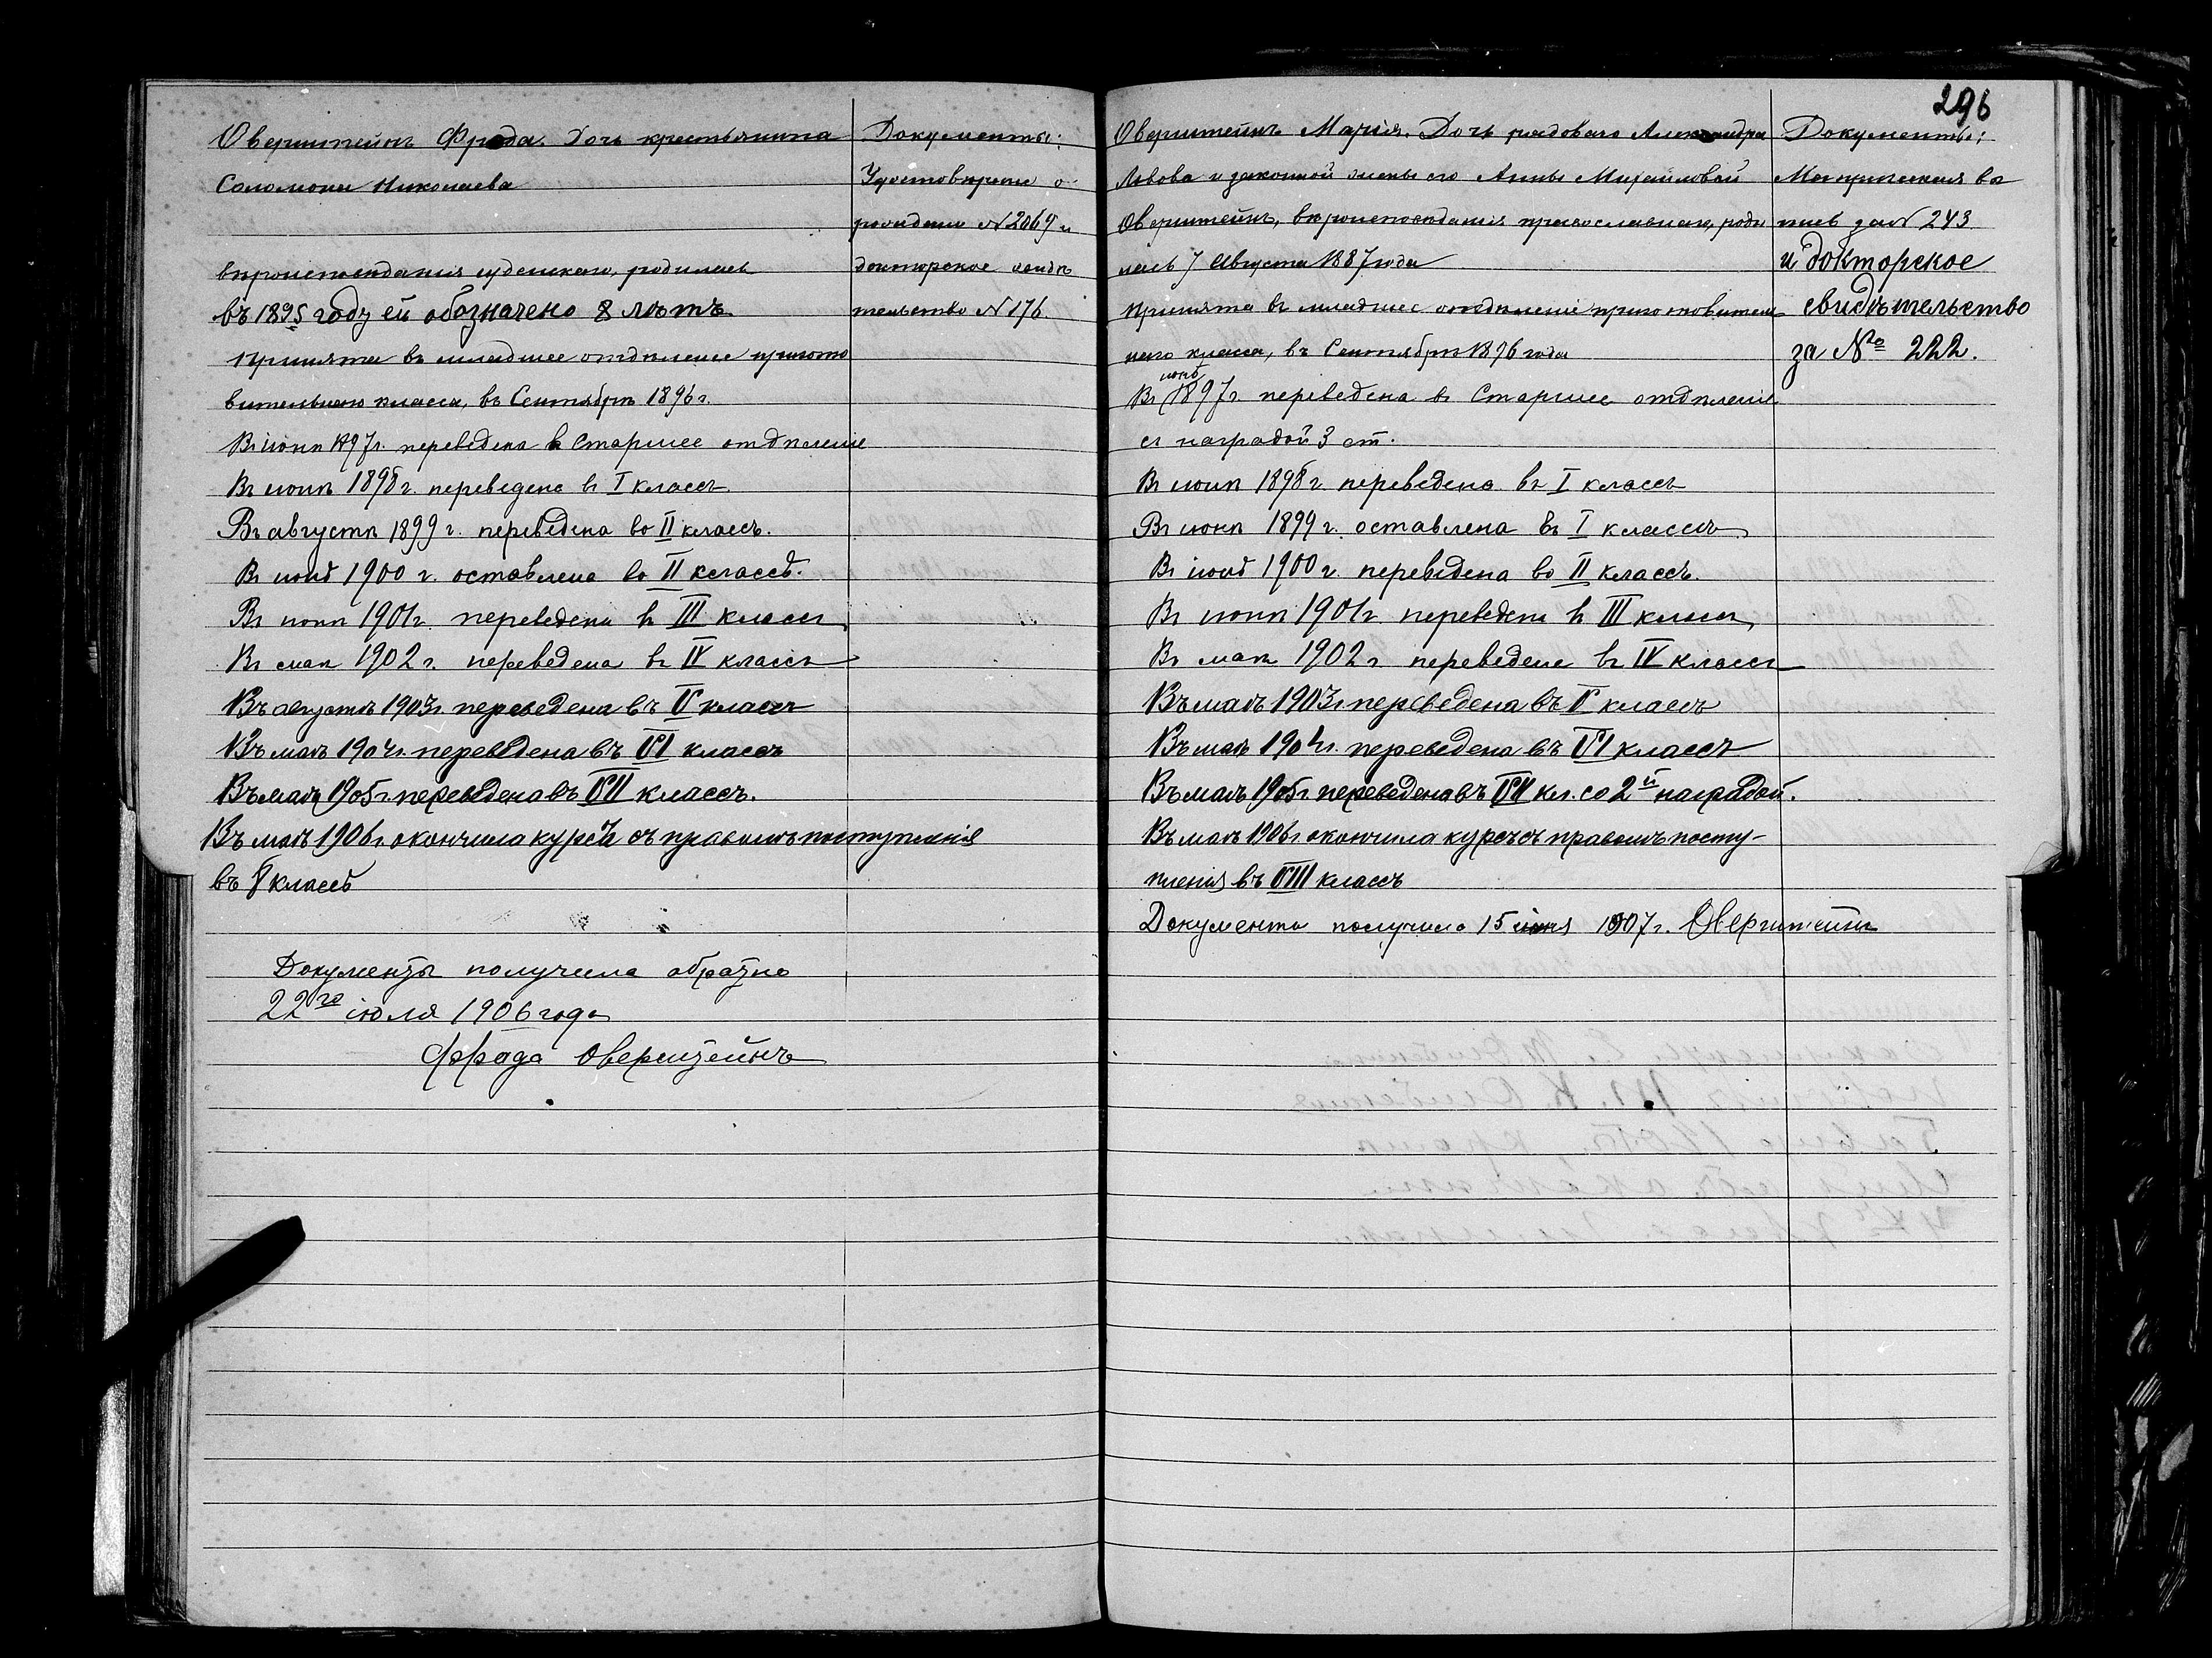 Оверштейнъ Фрада. Дочь крестьянина
Соломона Николаева
вѣроисповѣданія іудейскаго, родилась
въ 1895 году ей обозначено 8 лѣтъ
принята въ младшее отдѣленіе пригото
вительнаго класса, въ Сентябрѣ 1896 г.
Въ іюнѣ 1897г. переведена въ старшее отдѣленіе
Въ іюнѣ 1898 г. переведена въ I классъ
Въ августѣ 1899 г. переведена во II классъ.
Въ іюнѣ 1900 г. оставлена во II классѣ.
Въ іюнѣ 1901г. переведена въ III классъ
Въ маѣ 1902 г. переведена въ IV классъ
Въ августѣ 1903г. переведена въ V классъ
Въ маѣ 1904г. переведена въ VI классъ
Въ маѣ 1905г. переведена въ VII классъ.
Въ маѣ 1906г. окончила курсъ съ правомъ поступленія
въ классъ
Документы получила обратно
22го іюля 1906 года
Фрада Оверштейнъ
Документы:
Удостовѣреніе о
рожденіи N 2069 и
докторское свидѣ
тельство N 176
296
Оверштейнъ Марія. Дочь рядоваго Александра
Львова и законной жены его Анны Михайловой
Оверштейнъ, вѣроисповѣданія православнаго, роди
лась 7 Августа 1887 года
принята въ младшее отдѣленіе приготовитель
наго класса, въ Сентябрѣ 1896 года
іюнѣ
Въ 1897г. переведена въ Старшее отдѣленіе
съ наградой 3 ст.
Въ іюнѣ 1898 г. переведена въ I классъ
Въ іюнѣ 1899 г. оставлена въ I классѣ
Въ іюнѣ 1900 г. переведена во II классъ.
Въ іюнѣ 1901г. переведена въ III классъ
Въ маѣ 1902 г. переведена въ IV классъ
Въ маѣ 1903г. переведена въ V классъ
Въ маѣ 1904г. переведена въ VI классъ
Въ маѣ 1905г. переведена въ VII кл. со 2й наградой.
Въ маѣ 1906г. окончила курсъ съ правомъ посту-
пленія въ VIII классъ
Документы получила 15 іюня 1907 г. Оверштейнъ
Документы:
Метрическая вы
пись за N 243
и докторское
свидѣтельство
за № 222.